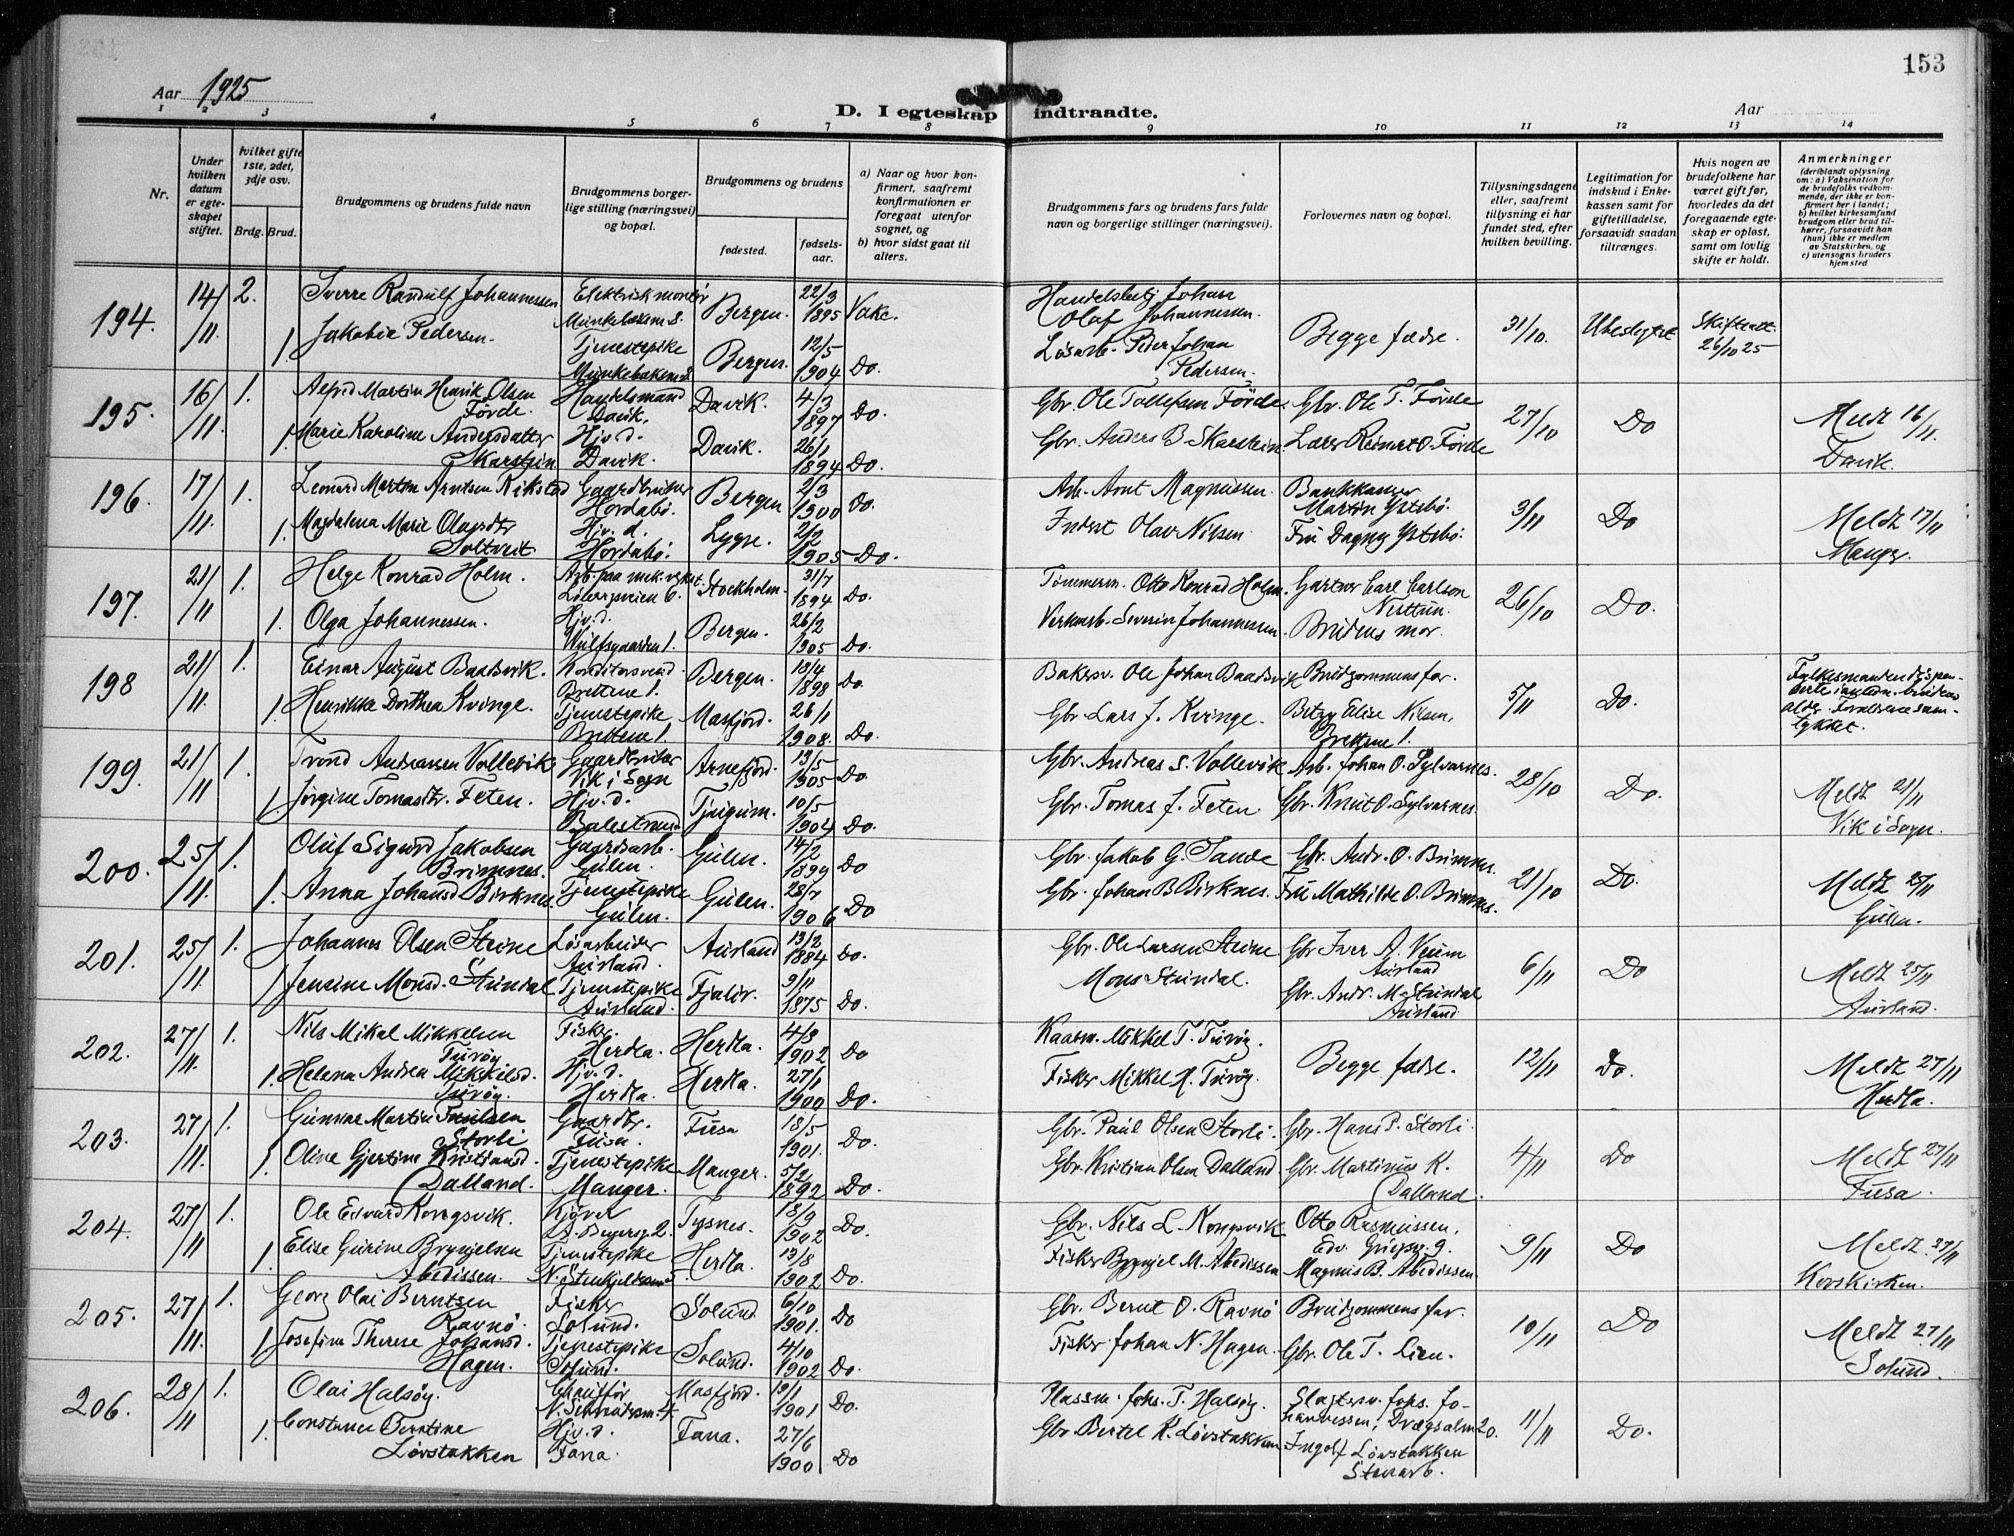 153
Aar 1925
D. I egteskap indtraadte.
Aar
1 2 3 4 5 6 7 8 9 10 11 12 13 14
Nr.
Under hvilken datum er egteskapet stiftet.
Hvilket gifte 1ste, 2det, 3dje osv.
Brdg. Brud.
Brudgommens og brudens fulde navn
Brudgommens borgerlige stilling (næringsvei) og bopæl.
Brudgommens og brudens
fødested.
fødselsaar.
a) Naar og hvor konfirmert, saafremt konfirmationen er foregaat utenfor sognet, og
b) hvor sidst gaat til alters.
Brudgommens fars og brudens fars fulde navn og borgerlige stillinger (næringsvei).
Forlovernes navn og bopæl.
Tillysningsdagene eller, saafremt tillysning ei har fundet sted, efter hvilken bevilling.
Legitimation for indskud i Enkekassen samt for giftetilladelse, forsaavidt saadan tiltrænges.
Hvis nogen av brudefolkene har været gift før, hvorledes da det foregaaende egteskap er opløst, samt om lovlig skifte er holdt.
Anmerkninger (deriblandt oplysning om: a) Vaksination for de brudefolks vedkommende, der ikke er konfirmert her i landet; b) hvilket kirkesamfund brudgom eller brud tilhører, forsaavidt han (hun) ikke er medlem av Statskirken, og c) utensogns bruders hjemsted
194. 14/11 2. Sverre Randulf Johannessen Elektriskmontør Munkebakken 8. Bergen. 22/3 1895 Vakc. Handelsbetj Johan Olaf Johannessen. Begge fædre. 31/10. Ubeslegtet Skifteatt. 26/10 25
1. Jakobia Pedersen. Tjenestepike Munkebakken 8 Bergen. 12/5 1904 Do. Løsarb. Peder Johan Pedersen.
195. 16/11 1. Alfred Martin Henrik Olsen Førde. Handelsmand Davik. Davik. 4/3 1897 Do. Gbr. Ole Tollefsen Førde. Gbr. Ole T. Førde 27/10 Do Meldt 16/11. Davik.
1. Marie Karoline Andersdatter Skarstein Hjv. d. Davik. Davik. 26/1 1894 Do. Gbr. Anders B. Skarstein. Lars Reinert O. Førde
196. 17/11 1. Leonard Martin Arntsen Rikstad Gaardbruker Hordabø. Bergen 2/3 1900 Do. Arb. Arnt Magnussen. Bankkasserer Martin Ystebø. 3/11 Do Meldt 17/11 Manger.
1. Magdalena Marie Olavsdtr Soltveit Hjv. d. Hordabø. Lygre. 2/2 1905 Do. Inderst Olav Nilsen Fru Dagny Ystebø.
197. 21/11 1. Helge Konrad Holm. Arb. paa mek. verkst. Løbergsveien 6. Stockholm. 31/7 1894 Do. Tømmerm. Otto Konrad Holm. Gartner Carl Carlson Nesttun. 26/10 Do.
1. Olga Johannessen. Hjv. d. Wulfsgaarden 1. Bergen. 26/2 1905 Do. Verksarb. Severin Johannessen. Brudens mor.
198 21/11 1. Einar August Baadsvik. Konditorsvend Brettene 1. Bergen. 13/4 1898 Do. Bakersv. Ole Johan Baadsvik Brudgommens far. 5/11 Do. Fylkesmanden dispenserte i anledn. brudens alder. Foreldrene samtykket.
1. Henrikke Dorthea Kvinge. Tjenestepike Brettene 1. Masfjord. 26/1 1908. Do. Gbr. Lars J. Kvinge. Betzy Elise Nilsen, Brettene 1.
199. 21/11 1. Trond Andreassen Vollevik Gaardbruker Vik i Sogn Arnefjord. 13/5 1905 Do Gbr. Andreas S. Vollevik Arb. Johan O. Sylvarnes. 28/10 Do. Meldt 21/11 Vik i Sogn.
1. Jørgine Tomasdtr. Feten. Hjv. d. Balestrand Tjugum. 10/5 1904 Do. Gbr. Tomas J. Feten. Gbr. Knut O. Sylvarnes.
200. 25/11. 1. Oluf Sigurd Jakobsen Brimnes. Gaardsarb. Gulen Gulen. 14/2 1899 Do Gbr. Jakob G. Sande Gbr. Andr. O. Brimnes. 21/10 Do. Meldt 25/11 Gulen.
1. Anna Johansd Birknes Tjenestepike Gulen. Gulen. 28/7 1906 Do Gbr. Johan B Birknes. Fru Mathilde O. Brimnes.
201. 25/11 1. Johannes Olsen Steine Løsarbeider Aurland. Aurland 13/2 1884 Do. Gbr. Ole Larsen Steine Gbr. Iver A. Veum Aurland 6/11 Do Meldt 25/11 Aurland.
1 Jensine Monsd. Stundal Tjenestepike Aurland. Fjaler. 9/11 1875 Do. Mons Stundal Gbr. Andr. M. Stundal Aurland
202. 27/11. 1. Nils Mikal Mikkelsen Turøy Fisker. Herdla. Herdla. 4/3 1902 Do Kaarm. Mikkel T. Turøy. Begge fædre. 12/11 Do. Meldt 27/11 Herdla.
1. Helena Andrea Mikkelsd. Turøy. Hjv. d. Herdla. Herdla. 27/1 1900 Do. Fisker Mikkel H. Turøy.
203. 27/11. 1. Gunnar Martin Paulsen Storli Gaardbr. Fusa. Fusa 18/5 1901. Do. Gbr. Paul Olsen Storli. Gbr. Hans P. Storli. 4/11 Do Meldt 27/11 Fusa.
1. Oline Gjertine Kristiansd. Dalland. Tjenestepike Manger. Manger. 5/2 1892 Do. Gbr. Kristian Olsen Dalland. Gbr. Martinus K. Dalland.
204. 27/11 1. Ole Edvard Kongsvik. Kjører Tysnes. 18/9 1902 Do. Gbr. Nils L. Kongsvik. Otto Rasmussen, Edv. Griegsv. 9. 9/11 Do Meldt 27/11 Korskirken.
1. Elise Gurine Brynjelsen Abedissen. Tjenestepike Herdla. 13/8 1902 Do. Fisker Brynjel M. Abedissen Magnus B. Abedissen
205. 27/11. 1. Georg Olai Berntsen Ravnø. Fisker Solund. Solund. 6/10 1901. Do Gbr. Bernt O. Ravnø Brudgommens far. 10/11 Do Meldt 27/11 Solund.
1 Josefine Therese Johansd. Hagen. Tjenestepike Solund. Solund. 4/10 1902 Do. Fisker Johan N. Hagen. Gbr. Ole T. Lien.
206. 28/11 1. Olai Halsøy. Chauffør Masfjord. 19/1 1901 Do. Plassm. Johs. T. Halsøy. Slagtersv. Johs. Johannessen, Dræggsalm 20. 11/11 Do.
1. Constance Berntine Løvstakken Hjv. d. Fana. Fana. 27/6 1900 Do Gbr Bertel K. Løvstakken Ingolf Løvstakken Stenarb.